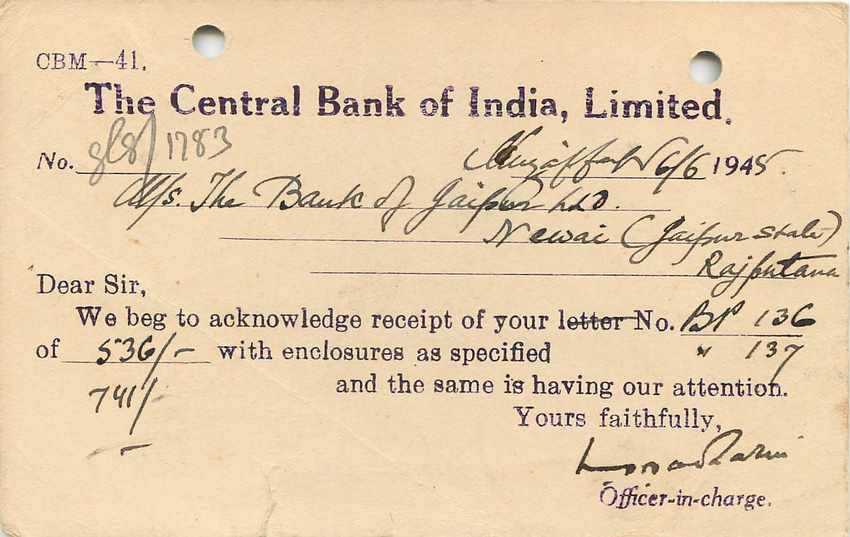 CBM—41.
The Central Bank of India, Limited.
No. gl8/1783 6/6 1945.
M/s. The Bank of Jaipur Ltd.
Newai (Jaipur State)
Rajputana
Dear Sir,
We beg to acknowledge receipt of your letter No. BP 136
of 536/- with enclosures as specified " 137
741/- and the same is having our attention.
Yours faithfully,
Officer-in-charge.